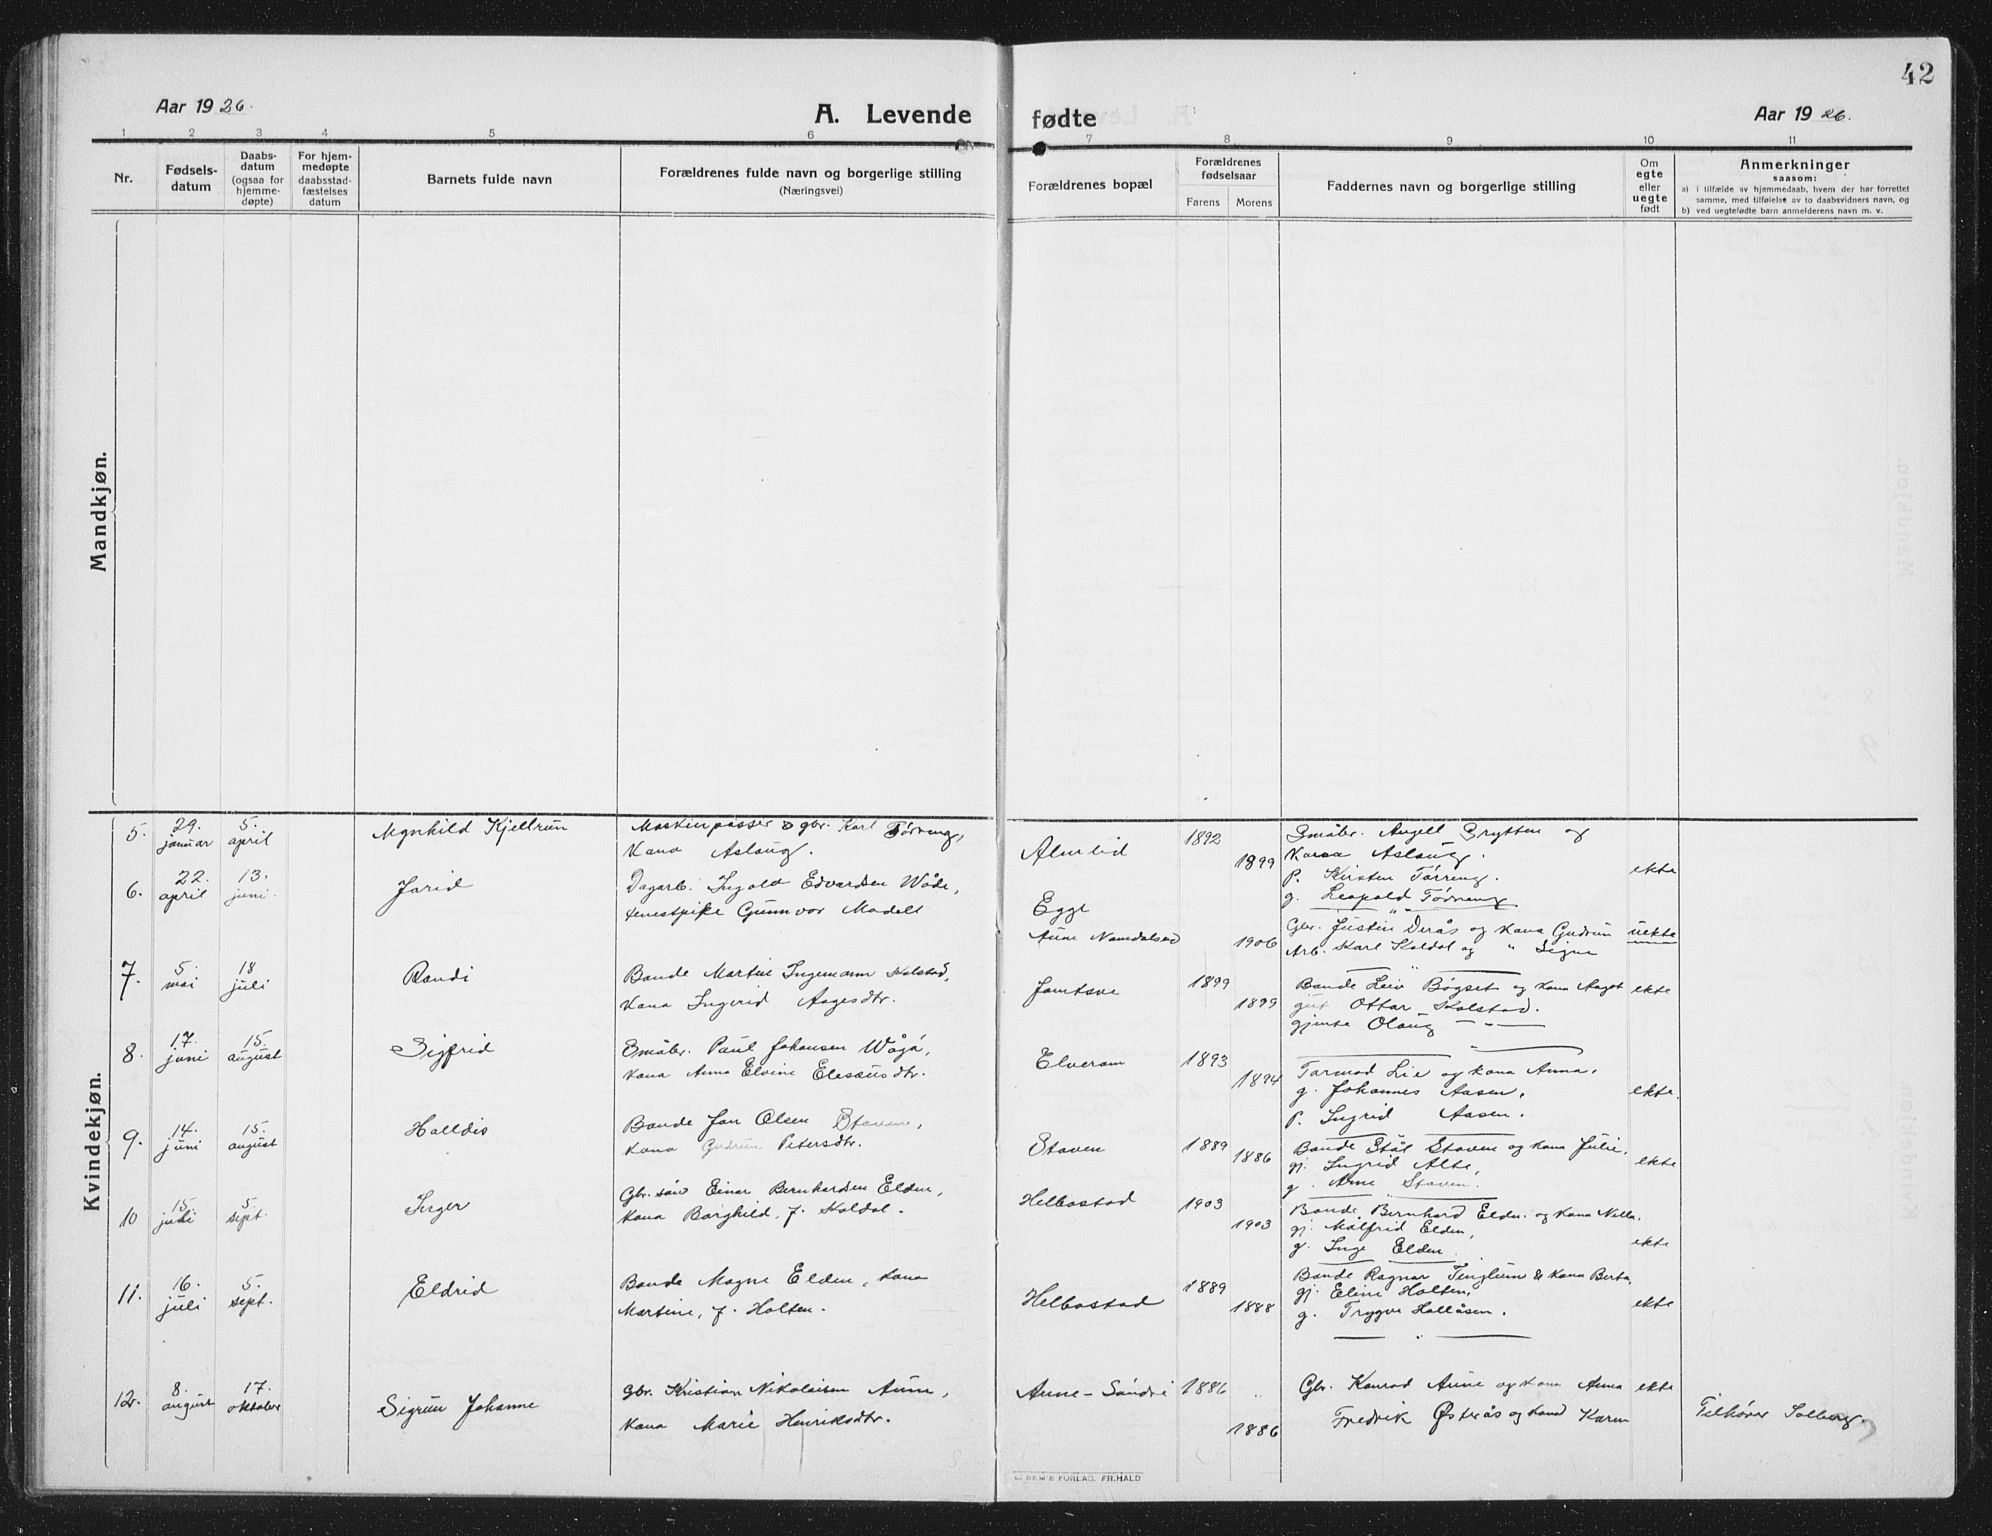 42
Aar 1926.
A. Levende
fødte
Aar 1926.
1 2 3 4 5 6 7 8 9 10 11
Nr.
Fødsels-
datum
Daabs-
datum
(ogsaa for
hjemme-
døpte)
For hjem-
medøpte
daabsstad-
fæstelses
datum
Barnets fulde navn
Forældrenes fulde navn og borgerlige stilling
(Næringsvei)
Forældrenes bopæl
Forældrenes
fødselsaar
Farens Morens
Faddernes navn og borgerlige stilling
Om
egte
eller
uegte
født
Anmerkninger
saasom:
a) i tilfælde av hjemmedaab, hvem der har forrettet
samme, med tilføielse av to daabsvidners navn, og
b) ved uegtefødte barn anmelderens navn m. v.
Mandkjøn.
Kvindekjøn.
5. 29. januar 5. april
Kjellrun
Maskinpasser & gbr. Karl Tørreng,
kona Aslaug.
1892
1899
Småbr. Angell Grytten og
kona Aslaug.
p. Kirsten Tørreng.
g. Leopold Tørreng
ekte
6. 22. april 13. juni.
Jorid
Dagarb. Ingolf Edvardsen Wåde,
tenestpike Gunnvor Modell
Egge
Aune Namdalseid
1906
Gbr. Justin Derås og kona Gudrun
Arb. Karl Koldal og " Signe
uekte
7. 5. mai 18 juli
Randi
Bonde Martin Ingemann Kolstad,
kona Ingerid Aagesdtr.
1899
1899
Bonde Leiv Bøgset og kona Aagot
gut Ottar Kolstad.
gjenta Olaug
ekte
8. 17. juni 15. august
Sigfrid
Småbr. Paul Johansen Wågå,
kona Anna Elvine Elesæusdtr.
Elveram
1893
1894
Tormod Lie og kona Anna,
g. Johannes Aasen,
p. Ingrid Aasen.
ekte.
9. 14. juni 15. august
Halldis
Bonde Jon Olsen Staven,
kona Gudrun Petersdtr.
Staven
1889
1886
Bonde Ståle Staven og kona Julie,
gj. Ingrid Alte,
g. Arne Staven.
ekte
10 15. juli 5. sept.
Inger
Gbr. søn Einar Bernhardsen Elden,
kona Borghild, f. Koldal.
Helbostad
1903
1903
Bonde Bernhard Elden og kona Nilla,
gj. Målfrid Elden,
g. Inge Elden.
ekte
11. 16. juli 5. sept.
Eldrid
Bonde Magne Elden, kona
Martine, f. Holten.
Helbostad
1889
1888
Bonde Ragnar Tinglum & kona Berta,
gj. Eline Holten,
g. Trygve Hallåsen.
ekte
12. 8. august 17. oktober
Sigrun Johanne
Gbr. Kristian Nikolaisen Aune,
kona Marie Henriksdtr.
1886
1886
Gbr. Konrad Aune og kona Anna
Fredrik Østerås og kona Karen
ekte
Tilhører Solberg.
FORLAG. FR.HALD